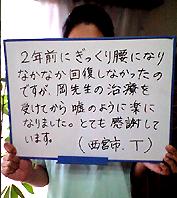 ２年前にぎっくり腰になり
なかなか回復しなかったの
ですが、岡先生の治療を
受けてから嘘のように楽に
なりました。とても感謝して
います。
（西宮市．T）